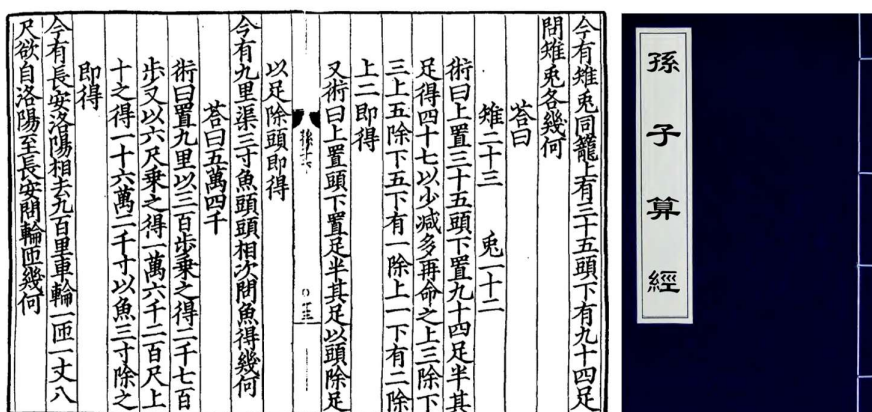 今有雉兎同籠上有三十五頭下有九十四足
問雉兎各幾何
荅曰
雉二十三 兎一十二
術曰上置三十五頭下置九十四足半其
足得四十七以少減多再命之上三除下
三上五除下五下有一除上一下有二除
上二即得
又術曰上置頭下置足半其足以頭除足
以足除頭即得
今有九里渠三寸魚頭頭相次問魚得幾何
荅曰五萬四千
術曰置九里以三百步乗之得二千七百
步又以六尺乗之得一萬六千二百尺上
十之得一十六萬二千寸以魚三寸除之
即得
今有長安洛陽相去九百里車輪一匝一丈八
尺欲自洛陽至長安問輪匝幾何
孫子算經